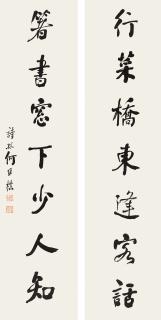 行菜橋東逢客話
箸書窗下少人知
詩孫何維樸